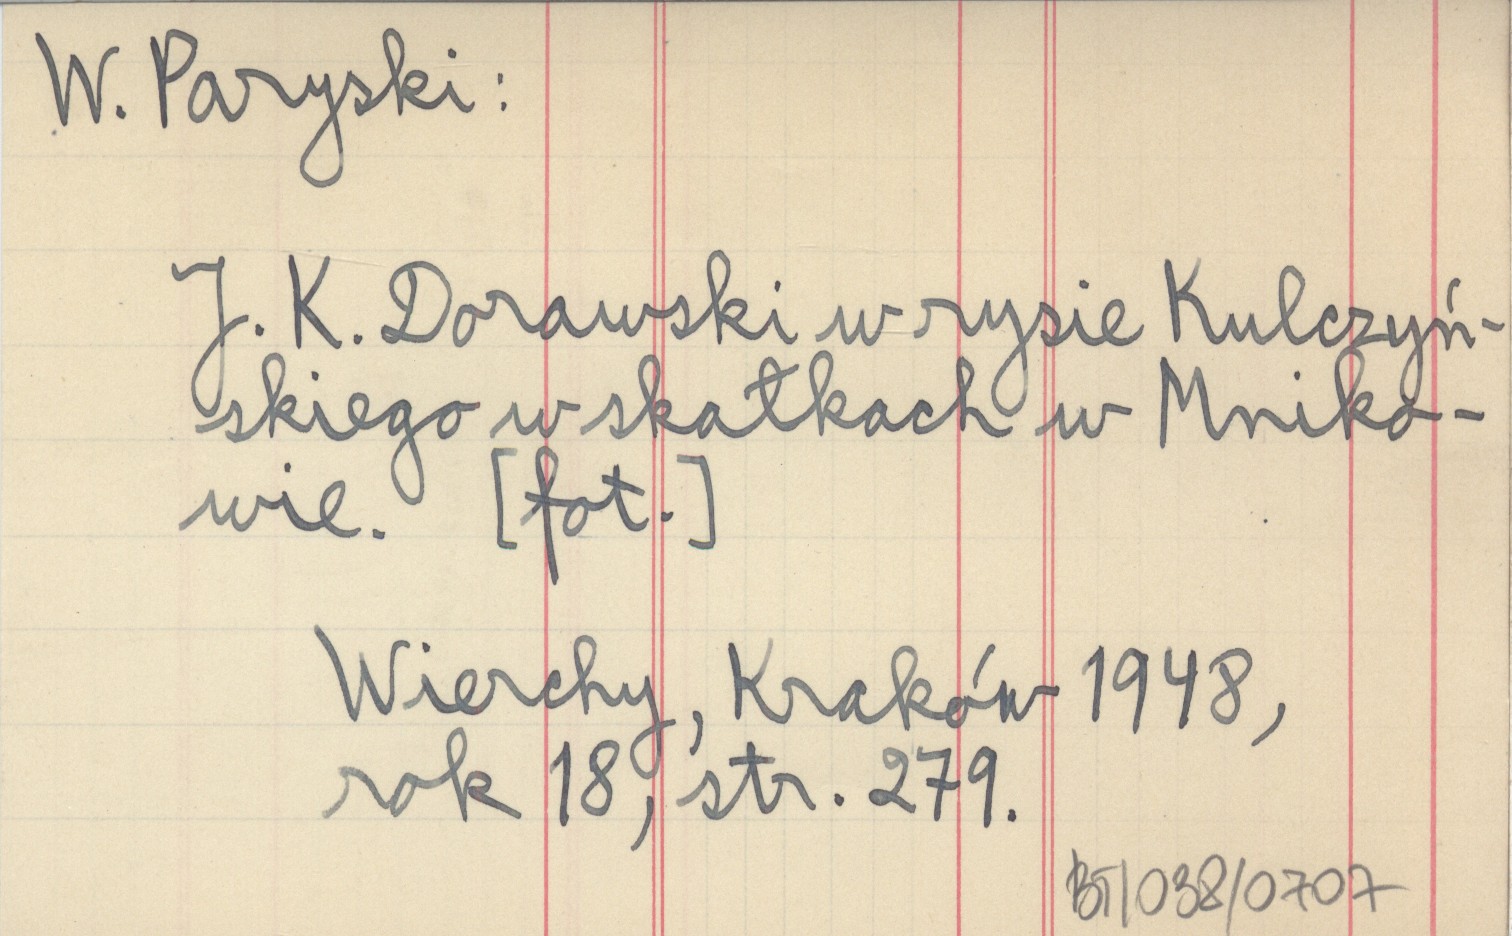 W. Paryski:
J. K. Dorawski w rysie Kulczyń-
skiego w skałkach w Mniko-
wie. [fot.]
Wierchy, Kraków 1948,
rok 18, str. 279.
BT/038/0707